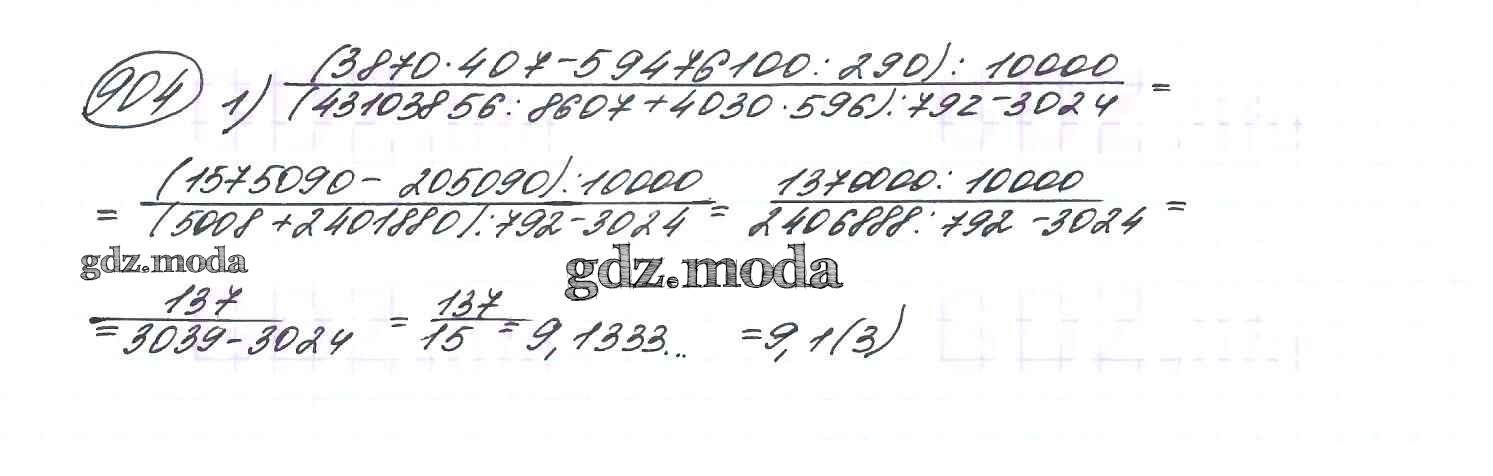 904 1) (3870·407-59476100:290):10000 / (43103856:8607+4030·596):792-3024 =
= (1575090-205090):10000 / (5008+2401880):792-3024 = 1370000:10000 / 2406888:792-3024 =
gdz.moda gdz.moda
= 137 / 3039-3024 = 137 / 15 = 9,1333... = 9,1(3)